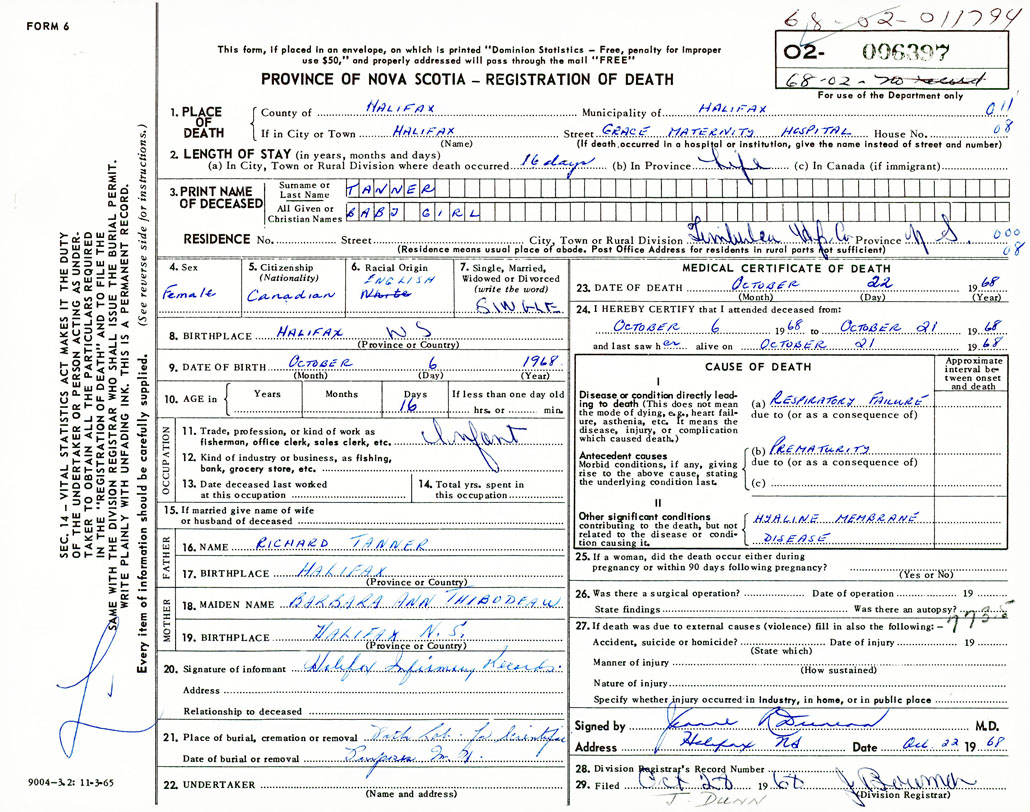 FORM 6
68-02-011794
This form, if placed in an envelope, on which is printed "Dominion Statistics – Free, penalty for improper
use $50," and properly addressed will pass through the mail "FREE"
02- 006397
68-02-
PROVINCE OF NOVA SCOTIA – REGISTRATION OF DEATH
For use of the Department only
SEC. 14 – VITAL STATISTICS ACT MAKES IT THE DUTY
OF THE UNDERTAKER OR PERSON ACTING AS UNDER-
TAKER TO OBTAIN ALL THE PARTICULARS REQUIRED
IN THE "REGISTRATION OF DEATH" AND TO FILE THE
SAME WITH THE DIVISION REGISTRAR WHO SHALL ISSUE THE BURIAL PERMIT.
WRITE PLAINLY WITH UNFADING INK. THIS IS A PERMANENT RECORD.
Every item of information should be carefully supplied. (See reverse side for instructions.)
1. PLACE OF DEATH
County of HALIFAX Municipality of HALIFAX 011
If in City or Town HALIFAX Street GRACE MATERNITY HOSPITAL House No. 08
(Name) (If death occurred in a hospital or institution, give the name instead of street and number)
2. LENGTH OF STAY (in years, months and days)
(a) In City, Town or Rural Division where death occurred 16 days (b) In Province Life (c) In Canada (if immigrant)
3. PRINT NAME OF DECEASED
Surname or Last Name TANNER
All Given or Christian Names BABY GIRL
RESIDENCE No. Street City, Town or Rural Division Timberlea Hfx. Co Province N S. 000
(Residence means usual place of abode. Post Office Address for residents in rural parts not sufficient) 08
4. Sex Female
5. Citizenship (Nationality) Canadian
6. Racial Origin ENGLISH White
7. Single, Married, Widowed or Divorced (write the word) SINGLE
8. BIRTHPLACE HALIFAX NS
(Province or Country)
9. DATE OF BIRTH OCTOBER 6 1968
(Month) (Day) (Year)
10. AGE in Years Months Days 16 If less than one day old hrs. or min.
OCCUPATION
11. Trade, profession, or kind of work as fisherman, office clerk, sales clerk, etc. Infant
12. Kind of industry or business, as fishing, bank, grocery store, etc.
13. Date deceased last worked at this occupation
14. Total yrs. spent in this occupation
15. If married give name of wife or husband of deceased
FATHER
16. NAME RICHARD TANNER
17. BIRTHPLACE HALIFAX
(Province or Country)
MOTHER
18. MAIDEN NAME BARBARA ANN THIBODEAU
19. BIRTHPLACE HALIFAX N.S.
(Province or Country)
20. Signature of informant Halifax Infirmary Records.
Address
Relationship to deceased
21. Place of burial, cremation or removal Path Lab. for Scientific
Date of burial or removal Purposes
22. UNDERTAKER
(Name and address)
9004-3.2: 11-3-65
MEDICAL CERTIFICATE OF DEATH
23. DATE OF DEATH OCTOBER 22 1968
(Month) (Day) (Year)
24. I HEREBY CERTIFY that I attended deceased from:
OCTOBER 6 1968 to OCTOBER 21 1968
and last saw her alive on OCTOBER 21 1968
CAUSE OF DEATH
Approximate interval between onset and death
I
Disease or condition directly leading to death (This does not mean the mode of dying, e.g., heart failure, asthenia, etc. It means the disease, injury, or complication which caused death.)
(a) RESPIRATORY FAILURE
due to (or as a consequence of)
Antecedent causes
Morbid conditions, if any, giving rise to the above cause, stating the underlying condition last.
(b) PREMATURITY
due to (or as a consequence of)
(c)
II
Other significant conditions contributing to the death, but not related to the disease or condition causing it.
HYALINE MEMBRANE
DISEASE
25. If a woman, did the death occur either during pregnancy or within 90 days following pregnancy?
(Yes or No)
26. Was there a surgical operation? Date of operation 19
State findings Was there an autopsy?
773.5
27. If death was due to external causes (violence) fill in also the following:–
Accident, suicide or homicide? Date of injury 19
(State which)
Manner of injury
(How sustained)
Nature of injury
Specify whether injury occurred in industry, in home, or in public place
Signed by Duncan M.D.
Address Halifax Date Oct. 22 1968
28. Division Registrar's Record Number
29. Filed Oct 28 1968 J Bowman
J. DUNN (Division Registrar)